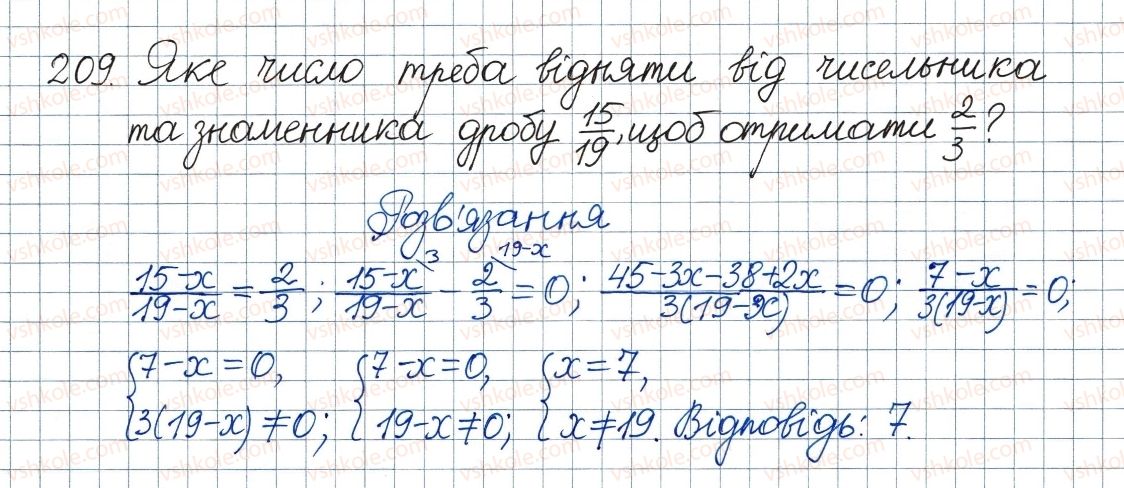 209. Яке число треба відняти від чисельника
та знаменника дробу 15/19, щоб отримати 2/3?
Розв'язання
(15-x)/(19-x) = 2/3; (15-x)/(19-x) \3 - 2/3 \19-x = 0; (45-3x-38+2x)/(3(19-x)) = 0; (7-x)/(3(19-x)) = 0;
{7-x=0, {7-x=0, {x=7,
{3(19-x)≠0; {19-x≠0; {x≠19. Відповідь: 7.